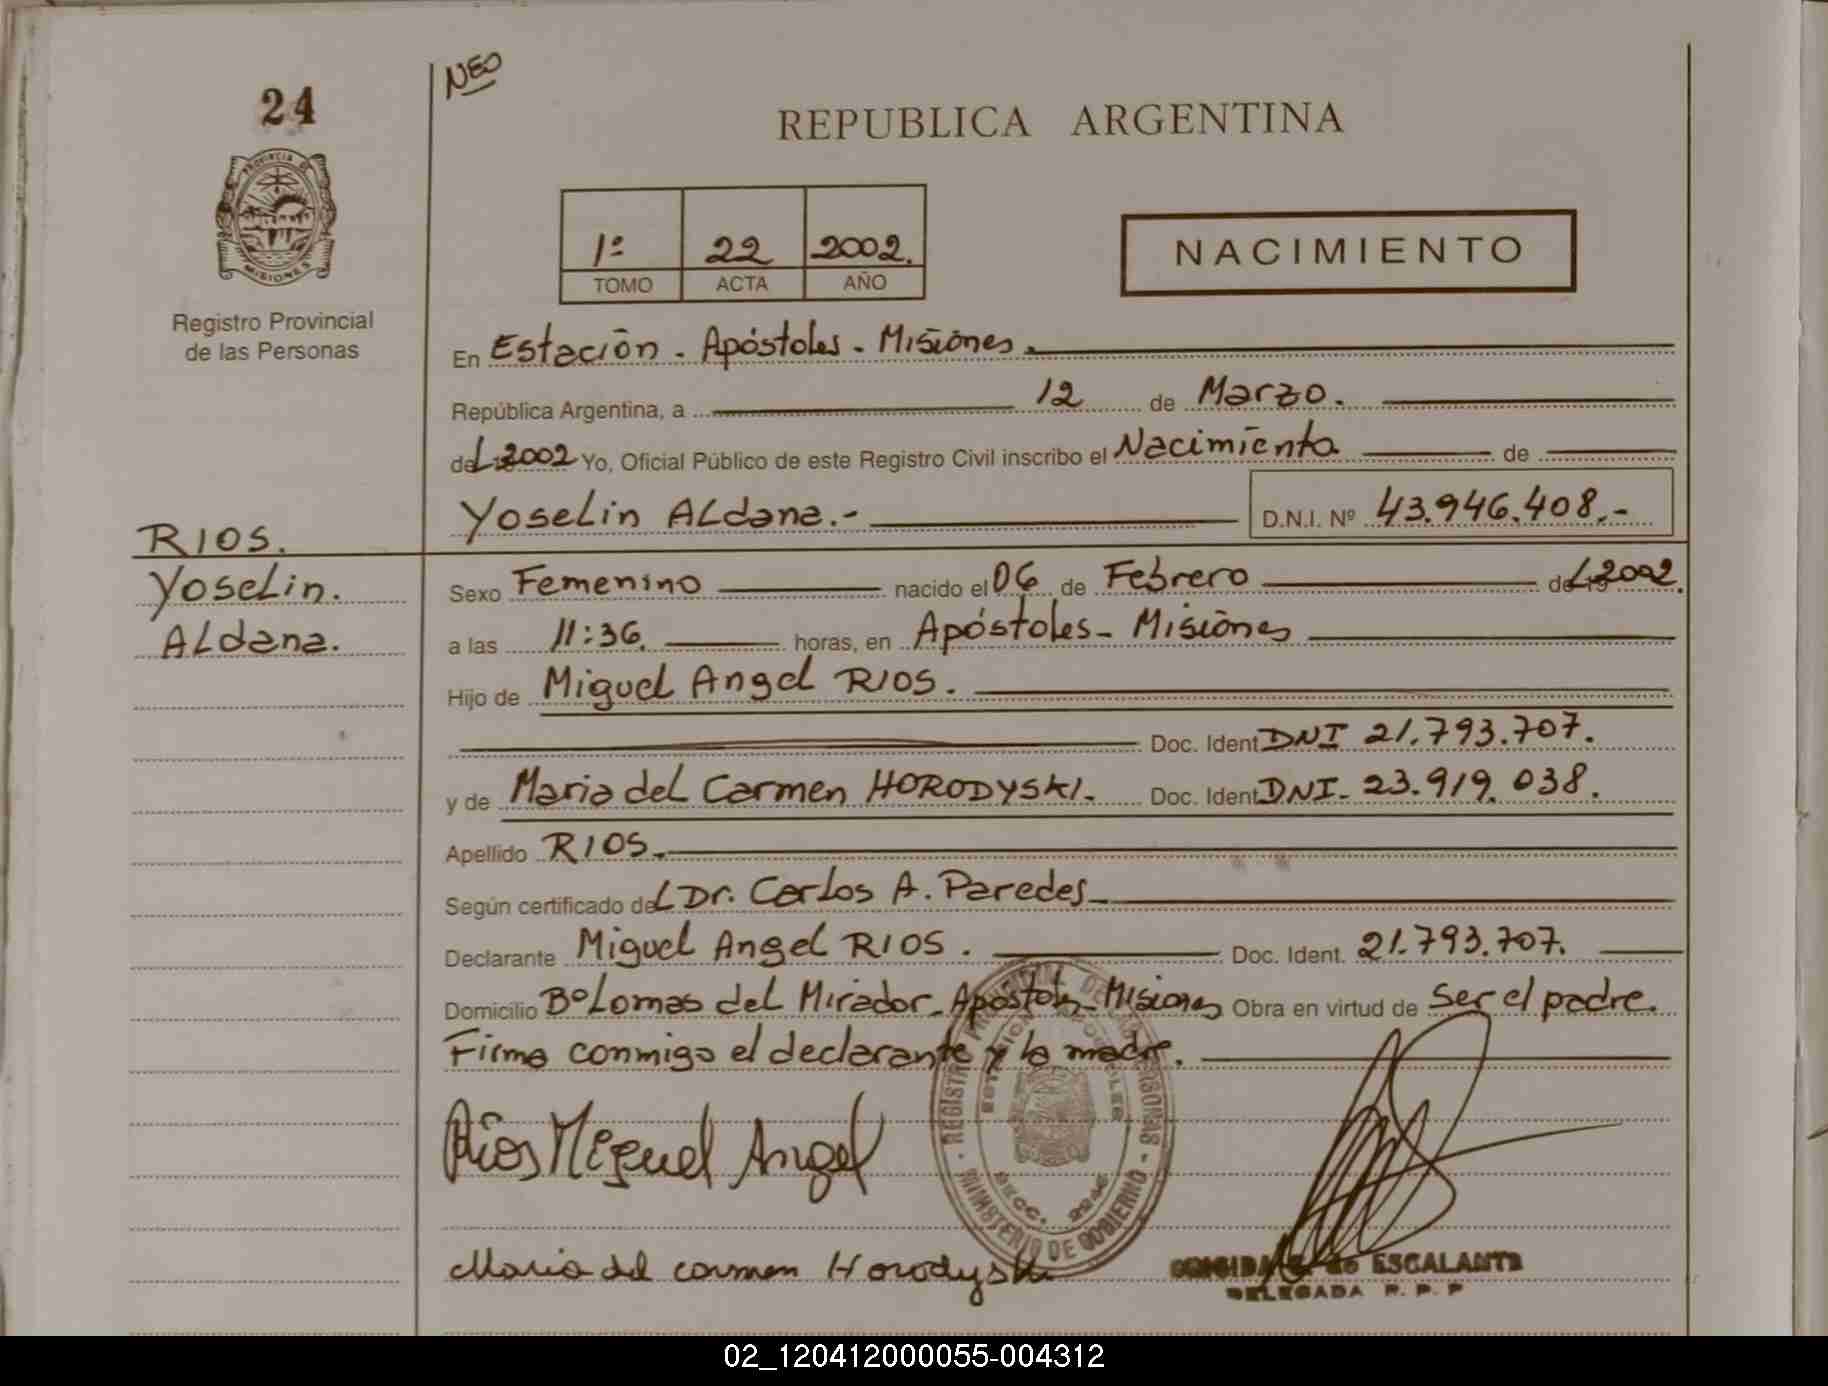 24
NEO
REPUBLICA ARGENTINA
PROVINCIA DE
MISIONES
Registro Provincial
de las Personas
1º 22 2002.
TOMO ACTA AÑO
NACIMIENTO
En Estación - Apóstoles - Misiones.
República Argentina, a 12 de Marzo.
del 2002 Yo, Oficial Público de este Registro Civil inscribo el Nacimiento de
Yoselin Aldana.- D.N.I. Nº 43.946.408.-
RIOS.
Yoselin.
Aldana.
Sexo Femenino nacido el 06 de Febrero del 2002.
a las 11:36. horas, en Apóstoles - Misiones
Hijo de Miguel Angel RIOS.
Doc. Ident DNI 21.793.707.
y de Maria del Carmen HORODYSKI. Doc. Ident DNI. 23.919.038.
Apellido RIOS.
Según certificado del Dr. Carlos A. Paredes
Declarante Miguel Angel RIOS. Doc. Ident. 21.793.707.
Domicilio Bº Lomas del Mirador - Apostoles - Misiones Obra en virtud de ser el padre.
Firma conmigo el declarante y la madre.
Rios Miguel Angel
REGISTRO PROVINCIAL DE LAS PERSONAS
MINISTERIO DE GOBIERNO
Maria del carmen Horodyski
de ESCALANTE
DELEGADA R. P. P
02_120412000055-004312